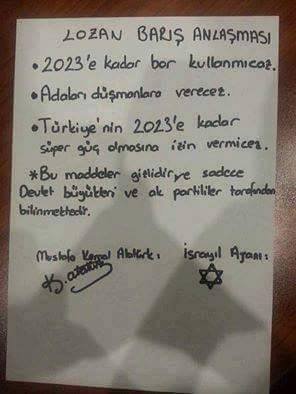 LOZAN BARIŞ ANLAŞMASI
• 2023'e kadar bor kullanmıcaz.
• Adaları düşmanlara verecez.
• Türkiye'nin 2023'e kadar
süper güç olmasına izin vermicez.
* Bu maddeler gizlidir ye sadece
Devlet büyükleri ve ak partililer tarafından
bilinmektedir.
Mustafa Kemal Atatürk: İsrayil Ajanı:
K. atatürk